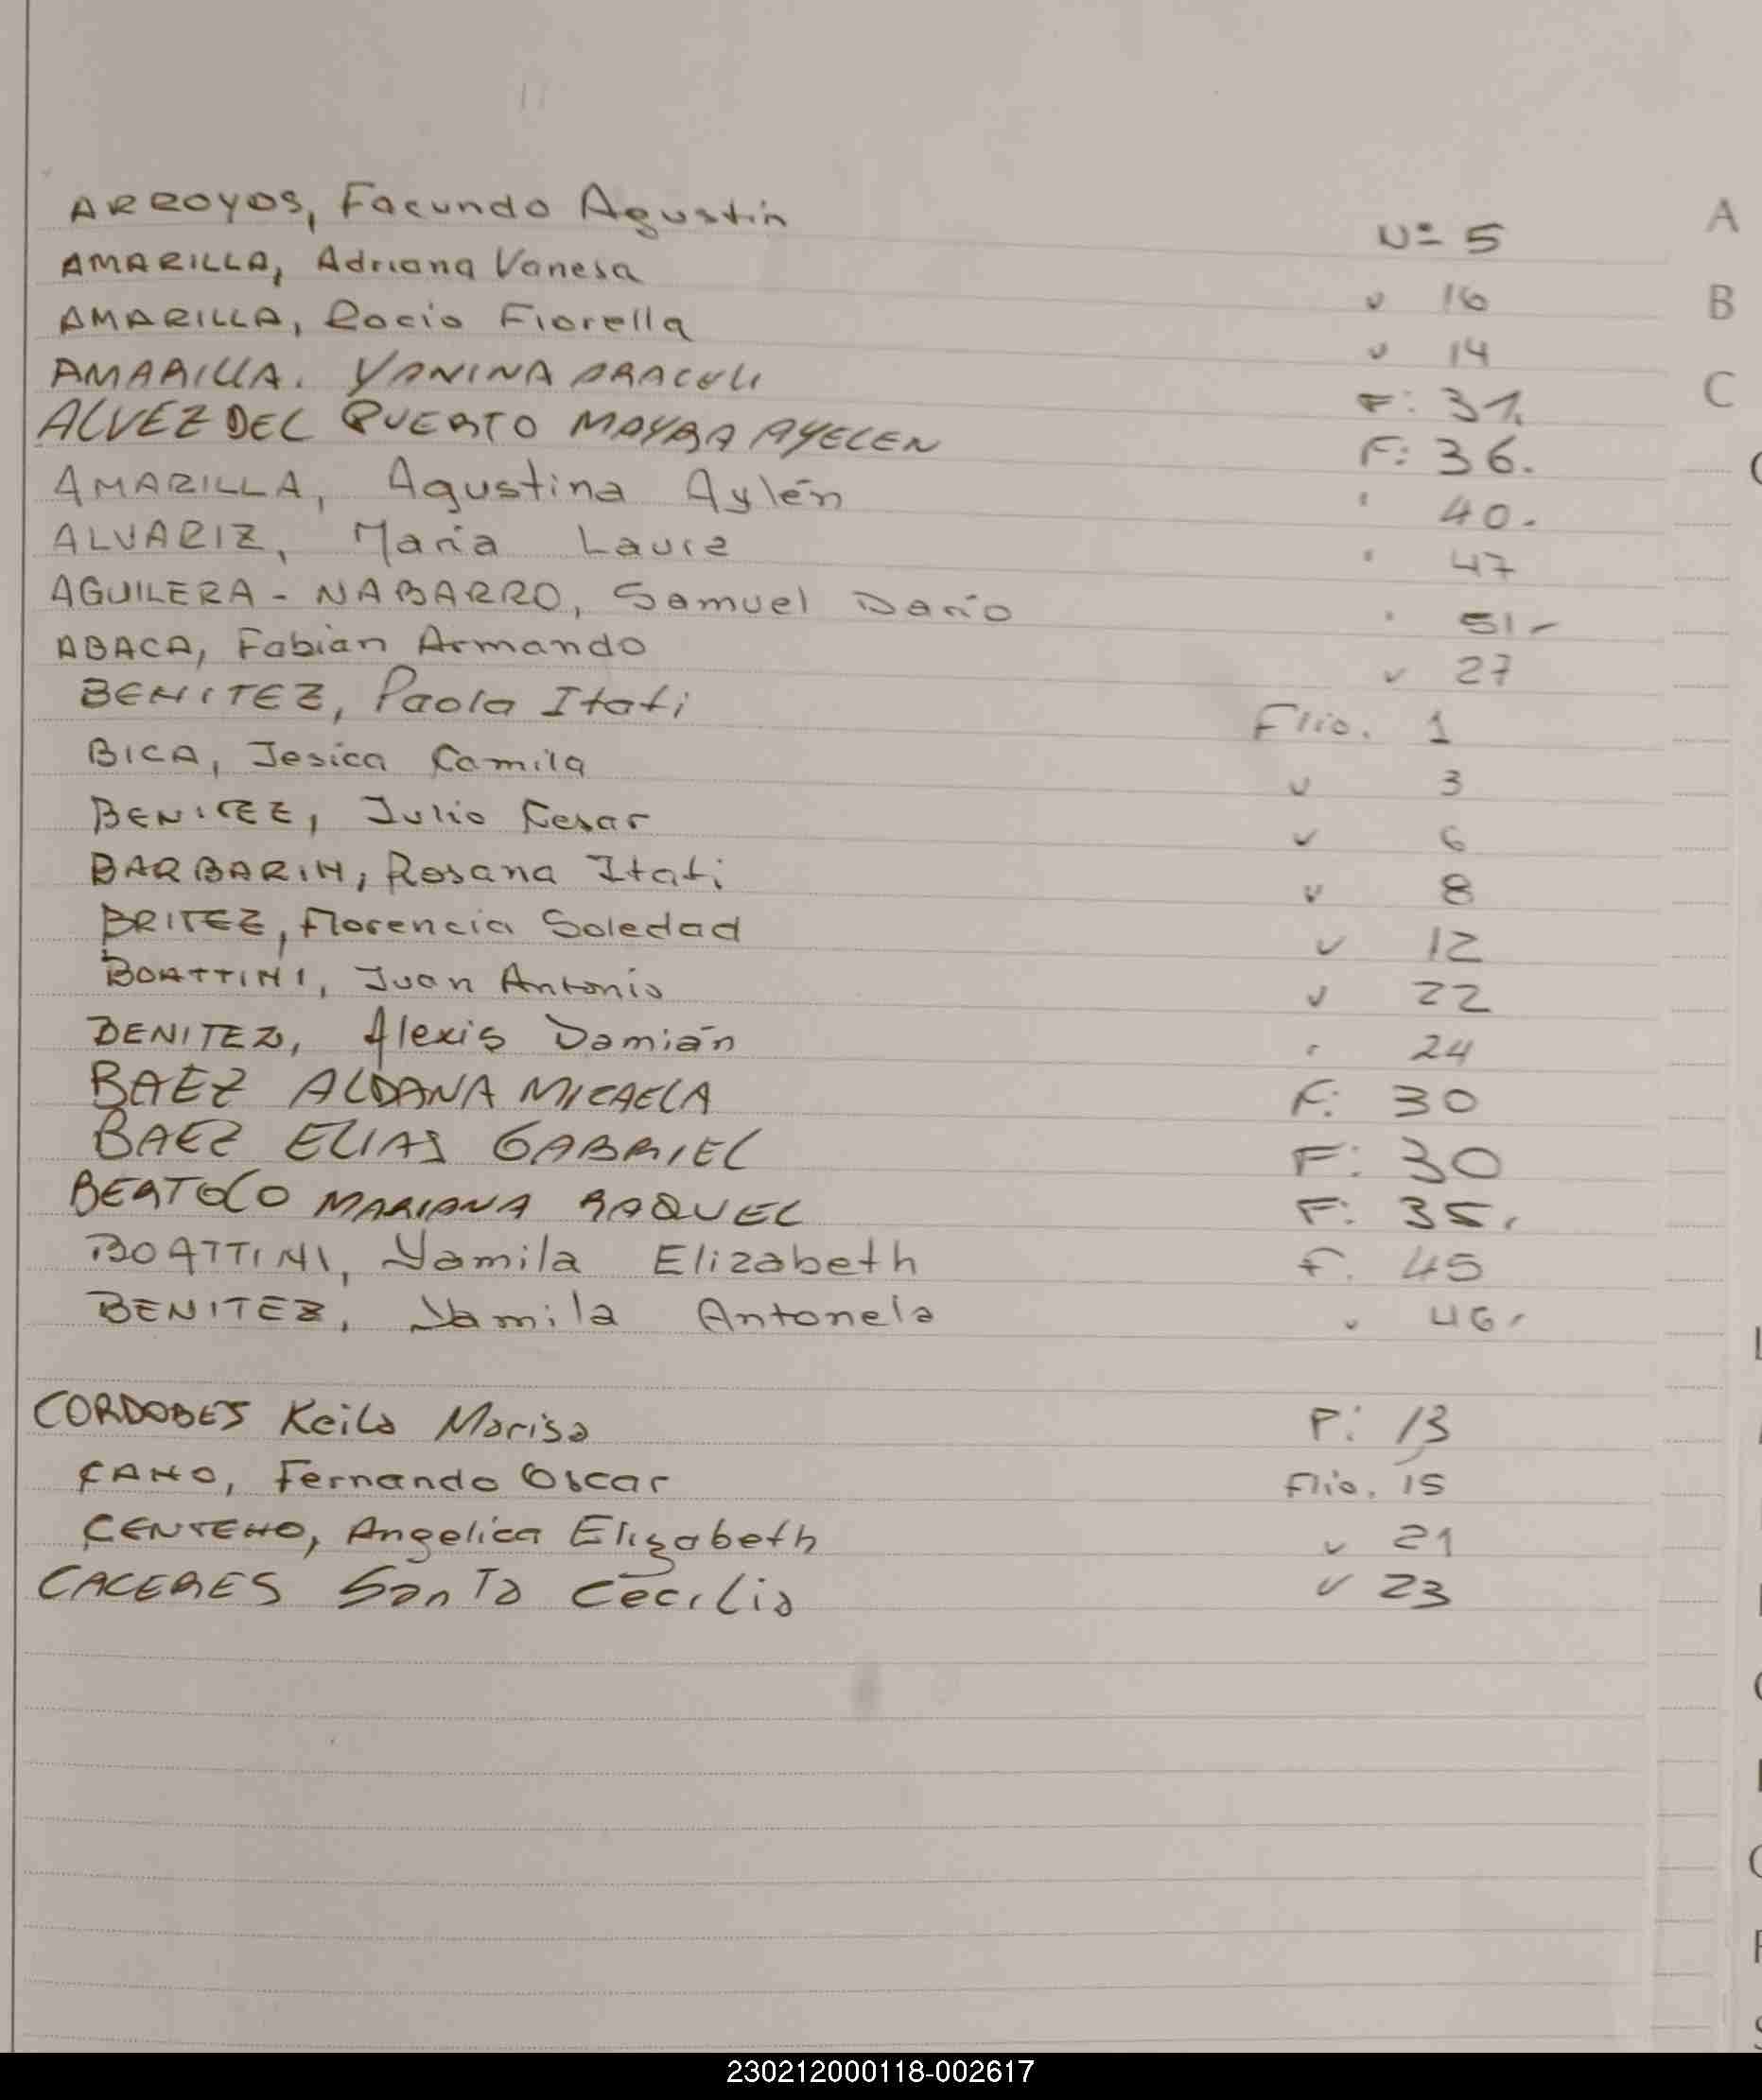 ARROYOS, Facundo Agustin Nº 5
AMARILLA, Adriana Vanesa " 16
AMARILLA, Rocio Fiorella " 14
AMARILLA. YANINA ARACELI F: 31.
ALVEZ DEL PUERTO MAYRA AYELEN F: 36.
AMARILLA, Agustina Aylén " 40.
ALVARIZ, Maria Laura " 47
AGUILERA - NABARRO, Samuel Dario " 51-
ABACA, Fabian Armando " 27
BENITEZ, Paola Itati Flio. 1
BICA, Jesica Camila " 3
BENITEZ, Julio Cesar " 6
BARBARIN, Rosana Itati " 8
BRITEZ, Florencia Soledad " 12
BOATTINI, Juan Antonio " 22
BENITEZ, Alexis Damián " 24
BAEZ ALDANA MICAELA F: 30
BAEZ ELIAS GABRIEL F: 30
BERTOLO MARIANA RAQUEL F: 35.
BOATTINI, Yamila Elizabeth F. 45
BENITEZ, Yamila Antonela " 46.
CORDOBES Keila Marisa F: 13
CANO, Fernando Oscar Flio. 15
CENTENO, Angelica Elizabeth " 21
CACERES Santa Cecilia " 23
A
B
C
230212000118-002617